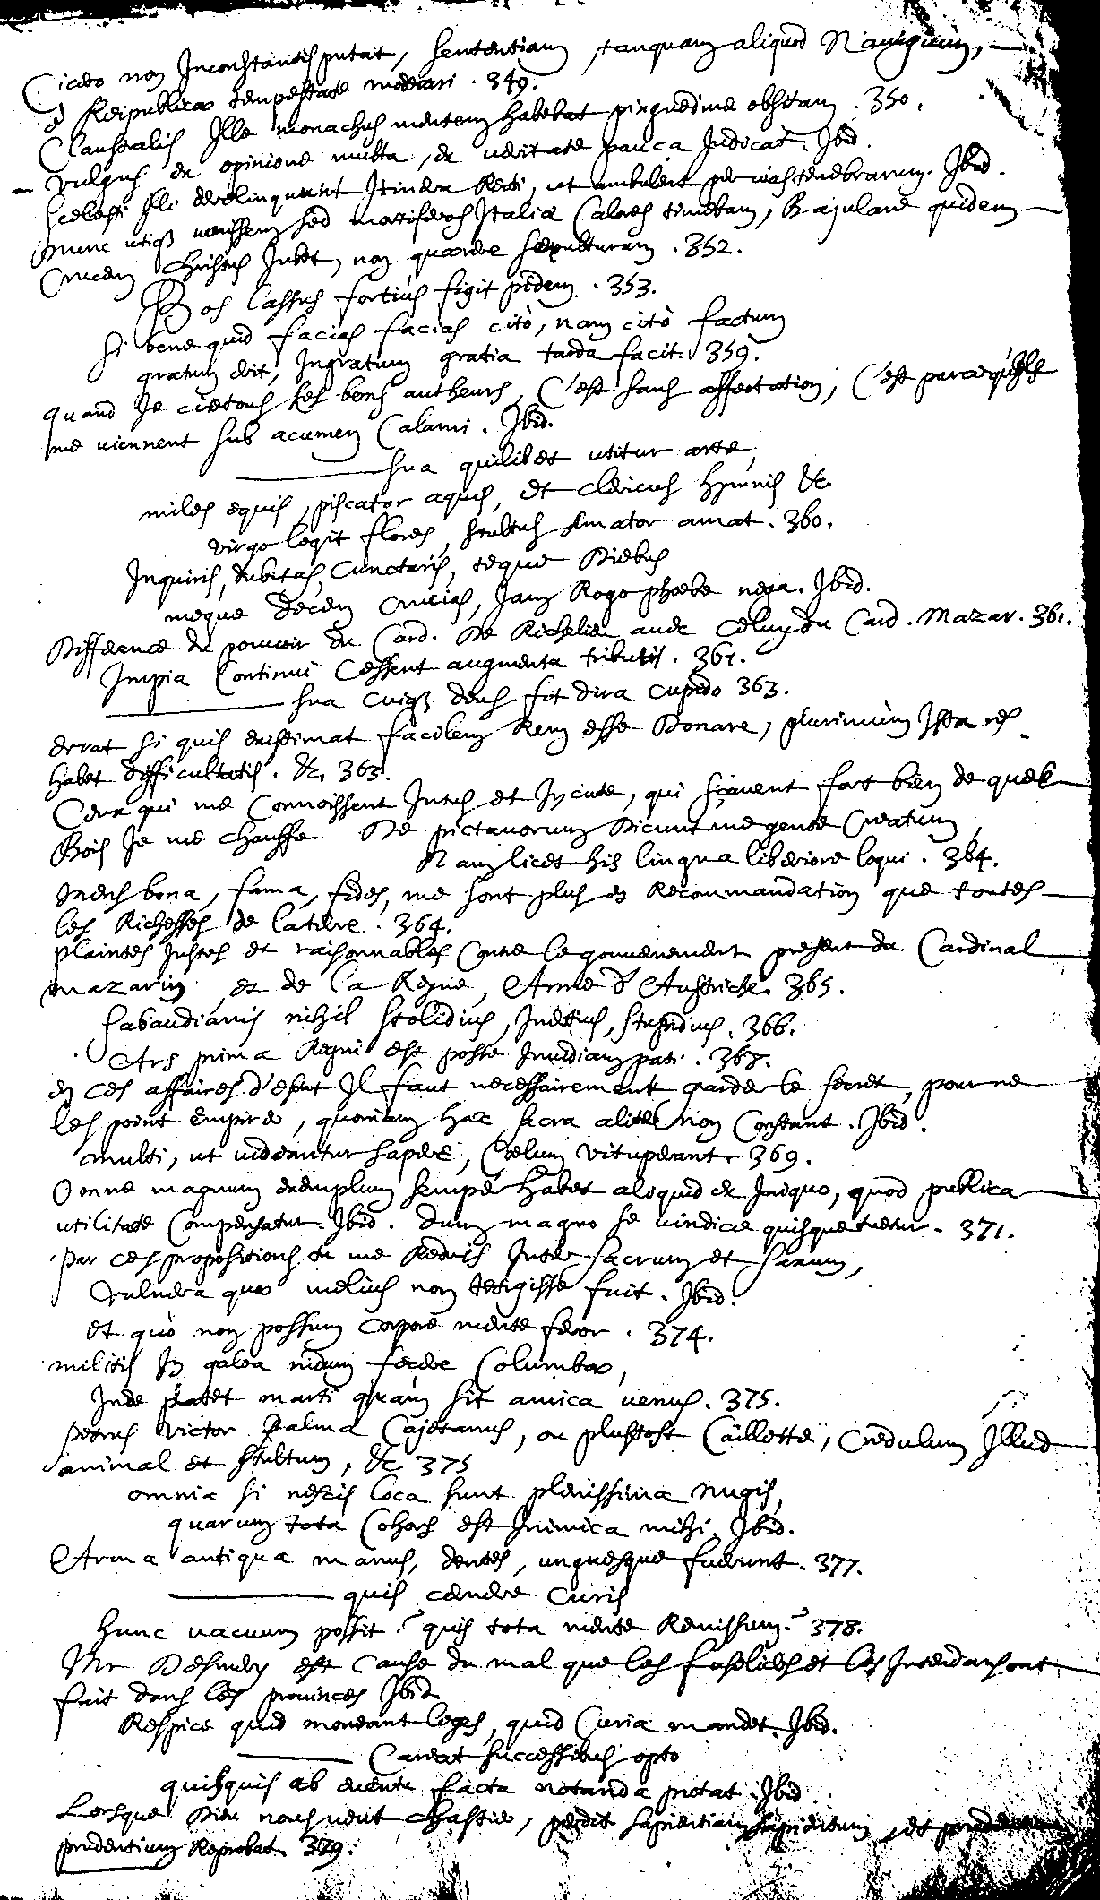 Cicero non Inconstantis putat, sententiam, tanquam aliquod Nauigium,
ex Reipublicae tempestate moderari. 349.
Claustralis Ille monachus mentem habebat pinguedine obsitam. 350.
Vulgus de opinione multa, de ueritate pauca Judicat. Ibid.
Scelesti Illi derelinquerunt Itinera Recti, ut ambulent per uias tenebrarum. Ibid.
nunc utiq; uenissem sed mortiferos Italiae Calores timebam, Bajulare quidem
Crucem Christus Jubet, non quaerere sepulturam. 352.
Bos lassus fortius figit pedem. 353.
Si bene quid facias facias citò, nam citò factum
gratum erit, Ingratum gratia tarda facit. 359.
quand Je cite tous ses bons autheurs, C'est sans affectation, C'est parce qu'ils
me viennent sub acumen Calami. Ibid.
sua quilibet utitur arte,
miles equis, piscator aquis, et clericus hymnis &c
virgo legit flores, stultus Amator amat. 360.
Inquiris, dubitas, Cunctaris, teque diebus
meque decem crucias, Jam Rogo phoebe nega. Ibid.
Difference du pouuoir du Card. De Richelieu auec celuy du Card. Mazar. 361.
Impia Continui Cessent augmenta tributi. 361.
sua cuiq; deus fit dira cupido 363.
errat si quis existimat facilem Rem esse Donare, plurimùm Ista res
habet difficultatis. &c. 363.
Ceux qui me Connoissent Intus et In cute, qui sçauent fort bien de quel
Bois Je me chauffe De pictauorum Dicunt me gente Creatum,
Nam licet his lingua liberiore loqui. 364.
mens bona, fama, fides, me sont plus en Recommandation que toutes
les Richesses de la terre. 364.
plaintes Justes et raisonnables Contre le gouuernement present du Cardinal
mazarin, et de la Reyne, Anne d'Austriche. 365.
Sabaudianis nihil stolidius, Ineptius, stupidius. 366.
Ars prima Regni est posse Inuidiam pati. 367.
en ces affaires d'estat Il faut necessairement garder le secret, pour ne
les point empirer, quoniam haec sacra aliter non Constant. Ibid.
multi, ut uideantur sapere, Coelum vituperant. 369.
Omne magnum exemplum semper habet aliquid ex Iniquo, quod publica
utilitate Compensatur. Ibid. dum magno se uindice quisque tuetur. 371.
par ces propositions tu me Reduis Inter sacrum et saxum,
Vulnera quae melius non tetigisse fuit. Ibid.
et quò non possum corpore mente feror. 374.
militis In galea nidum fecere Columbae,
Inde patet marti quàm sit amica uenus. 375.
petrus victor Palma Cajetanus, ou plustost Caillette, Credulum Illud
animal et stultum, &c 375
omnia si nescis loca sunt plenissima nugis,
quarum tota Cohors est Inimica mihi. Ibid.
Arma antiqua manus, dentes, unguesque fuerunt. 377.
quis cernere curis
hunc uacuum possit? quis tota mente Remissum? 378.
Mr Desmery est Cause du mal que les fuseliers et les Intendans ont
fait dans les prouinces Ibid
Respice quid moneant leges, quid Curia mandet. Ibid.
Careat successibus opto
quisquis ab euentu facta notanda putat. Ibid
Lorsque Dieu nous veut Chastier, perdit sapientiam sapientum, et prudentiam
prudentium Reprobat. 379.